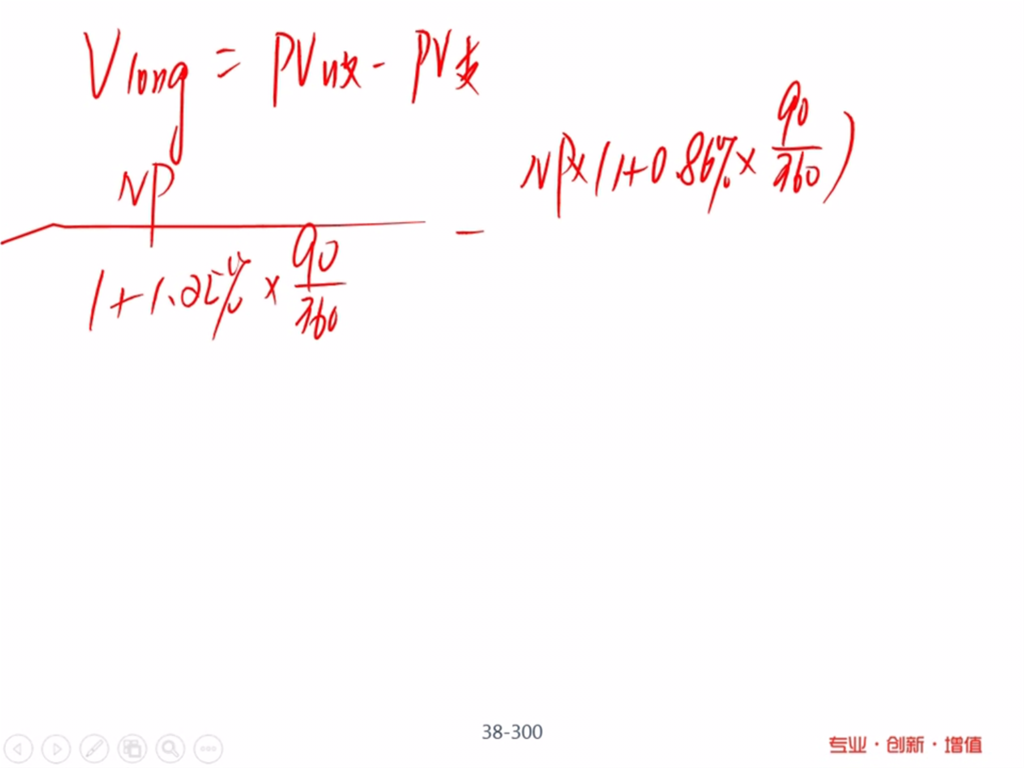 Vlong = PV收 - PV支
NP
1+1.25% × 90/360
-
NP×(1+0.86% × 90/360)
38-300
专业·创新·增值